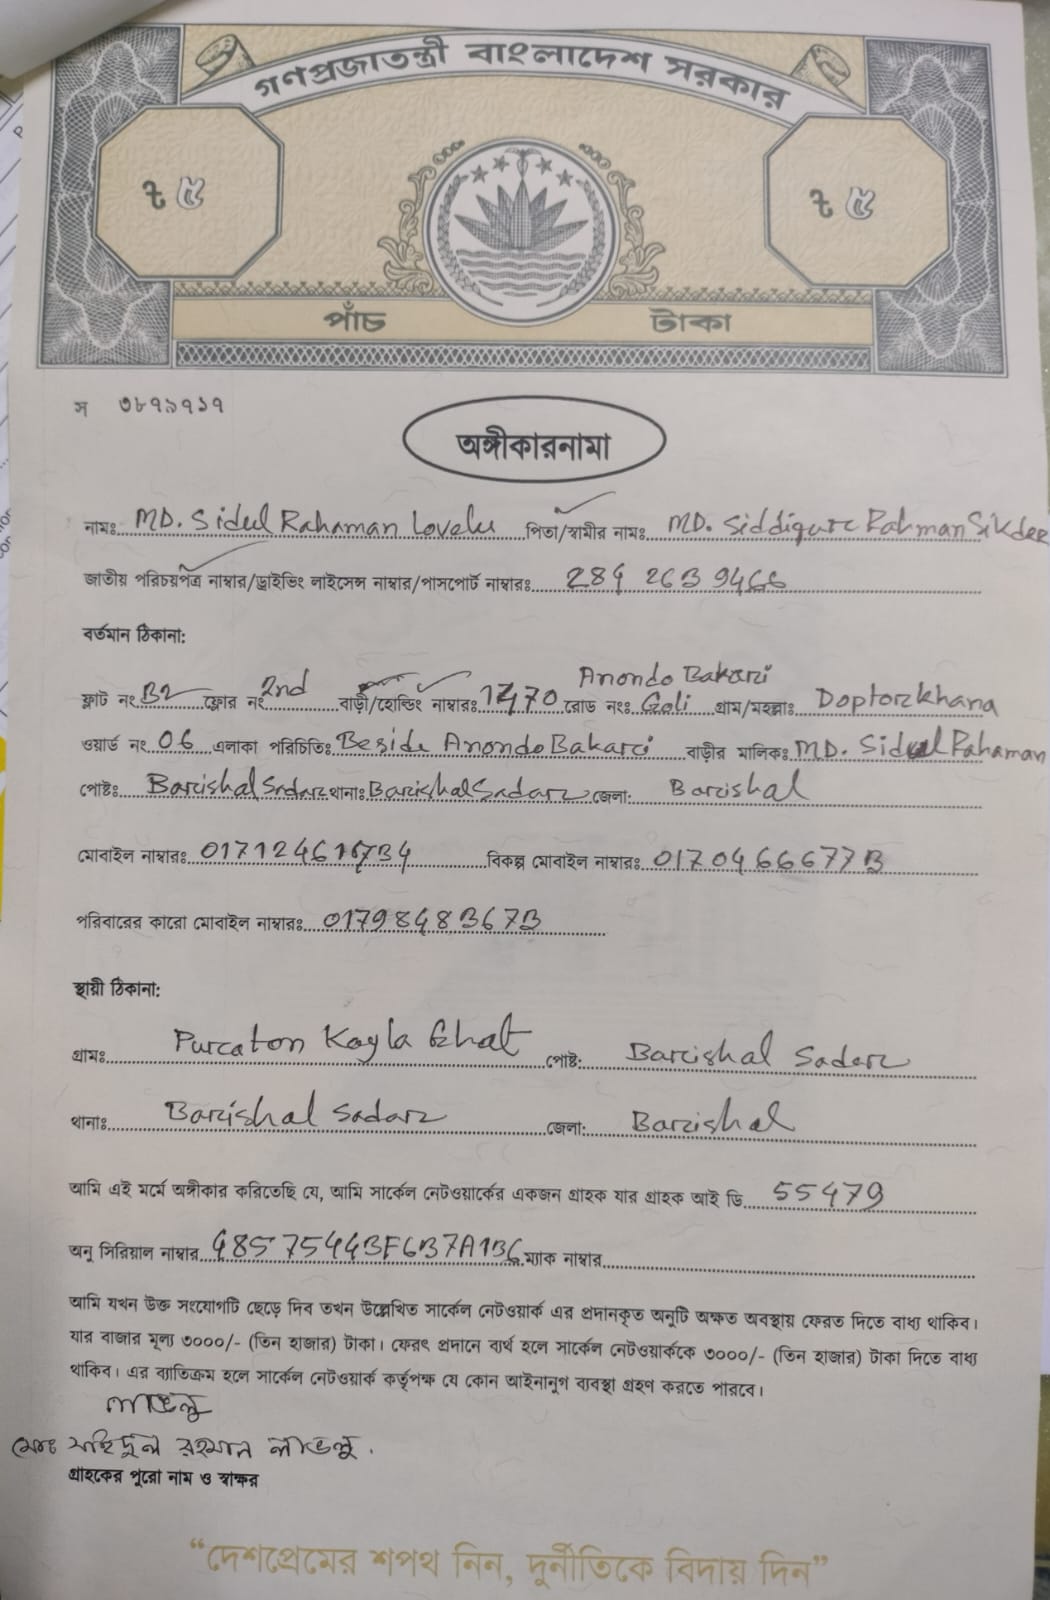 গণপ্রজাতন্ত্রী বাংলাদেশ সরকার
ট ৫ ট ৫
পাঁচ টাকা
স ৩৮৭৯৭১৭
অঙ্গীকারনামা
নামঃ MD. Sidul Rahaman Lovelu পিতা/স্বামীর নামঃ MD. Siddiqure Rahman Sikder
জাতীয় পরিচয়পত্র নাম্বার/ড্রাইভিং লাইসেন্স নাম্বার/পাসপোর্ট নাম্বারঃ 284 263 9466
বর্তমান ঠিকানা:
ফ্লাট নং B2 ফ্লোর নং 2nd বাড়ী/হোল্ডিং নাম্বারঃ 1470 রোড নংঃ Anondo Bakari Goli গ্রাম/মহল্লাঃ Doptorkhana
ওয়ার্ড নং 06 এলাকা পরিচিতিঃ Beside Anondo Bakari বাড়ীর মালিকঃ MD. Sidul Rahaman
পোষ্টঃ Barishal Sadar থানাঃ Barishal Sadar জেলা: Barishal
মোবাইল নাম্বারঃ বিকল্প মোবাইল নাম্বারঃ 01704666773
পরিবারের কারো মোবাইল নাম্বারঃ 01798483673
স্থায়ী ঠিকানা:
গ্রামঃ Puraton Kayla Ghat পোষ্ট: Barishal Sadar
থানাঃ Barishal Sadar জেলা: Barishal
আমি এই মর্মে অঙ্গীকার করিতেছি যে, আমি সার্কেল নেটওয়ার্কের একজন গ্রাহক যার গ্রাহক আই ডি 55479
অনু সিরিয়াল নাম্বার 48575443F6B7A1B6 ম্যাক নাম্বার
আমি যখন উক্ত সংযোগটি ছেড়ে দিব তখন উল্লেখিত সার্কেল নেটওয়ার্ক এর প্রদানকৃত অনুটি অক্ষত অবস্থায় ফেরত দিতে বাধ্য থাকিব।
যার বাজার মূল্য ৩০০০/- (তিন হাজার) টাকা। ফেরৎ প্রদানে ব্যর্থ হলে সার্কেল নেটওয়ার্ককে ৩০০০/- (তিন হাজার) টাকা দিতে বাধ্য
থাকিব। এর ব্যাতিক্রম হলে সার্কেল নেটওয়ার্ক কর্তৃপক্ষ যে কোন আইনানুগ ব্যবস্থা গ্রহণ করতে পারবে।
লাভলু
মোঃ সহিদুল রহমান লাভলু.
গ্রাহকের পুরো নাম ও স্বাক্ষর
“দেশপ্রেমের শপথ নিন, দুর্নীতিকে বিদায় দিন”